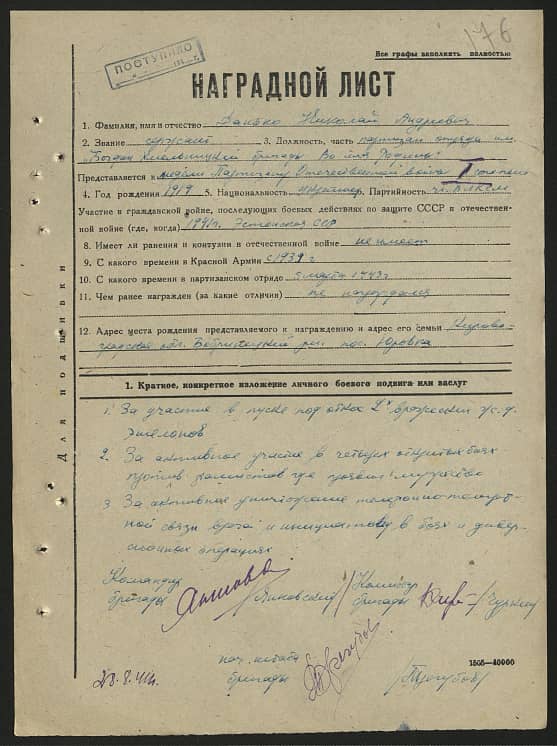 176
Все графы заполнять полностью
ПОСТУПИЛО
НАГРАДНОЙ ЛИСТ
1. Фамилия, имя и отчество Данько Николай Андреевич
2. Звание сержант 3. Должность, часть партизан отряда им.
Богдан Хмельницкий бригады Во имя Родины
Представляется к медали Партизану Отечественной войны I степени
4. Год рождения 1919 5. Национальность украинец, Партийность чл. ВЛКСМ
Участие в гражданской войне, последующих боевых действиях по защите СССР в отечествен-
ной войне (где, когда) 1941г. Эстонская ССР
8. Имеет ли ранения и контузии в отечественной войне не имеет
9. С какого времени в Красной Армии с 1939 г
10. С какого времени в партизанском отряде 5 марта 1943 г.
11. Чем ранее награжден (за какие отличия) не награждался
12. Адрес места рождения представляемого к награждению и адрес его семьи Кирово-
градская обл. Бобринецкий р-н. пос. Юровка
Для подшивки
1. Краткое, конкретное изложение личного боевого подвига или заслуг
1. За участие в пуске под откос 2х вражеских ж.д.
эшелонов
2. За активное участие в четырех открытых боях
против где проявил мужество
3 За активное уничтожение телефонно-телеграф-
ной связи врага и инициативу в боях и дивер-
сионных операциях
Командир Комиссар
бригады /Яновский/ бригады /Чуркин
нач. штаба
бригады /Трегубов/
23.8.44г.
1505—40000